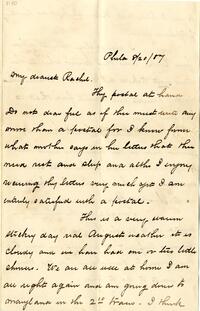 Phila 8/20/87
My dearest Rachel.
Thy postal at hand
Do not feel as if thee must write any
more than a postal for I know from
what mother says in her letter that thee
need rest and sleep and altho I enjoy
receiving thy letters very much yet I am
entirely satisfied with a postal.
This is a very warm
sticky day real August weather it is
cloudy and we have had one or two little
showers. We are all well at home I am
all right again and am going down to
Maryland in the 2nd train. I think